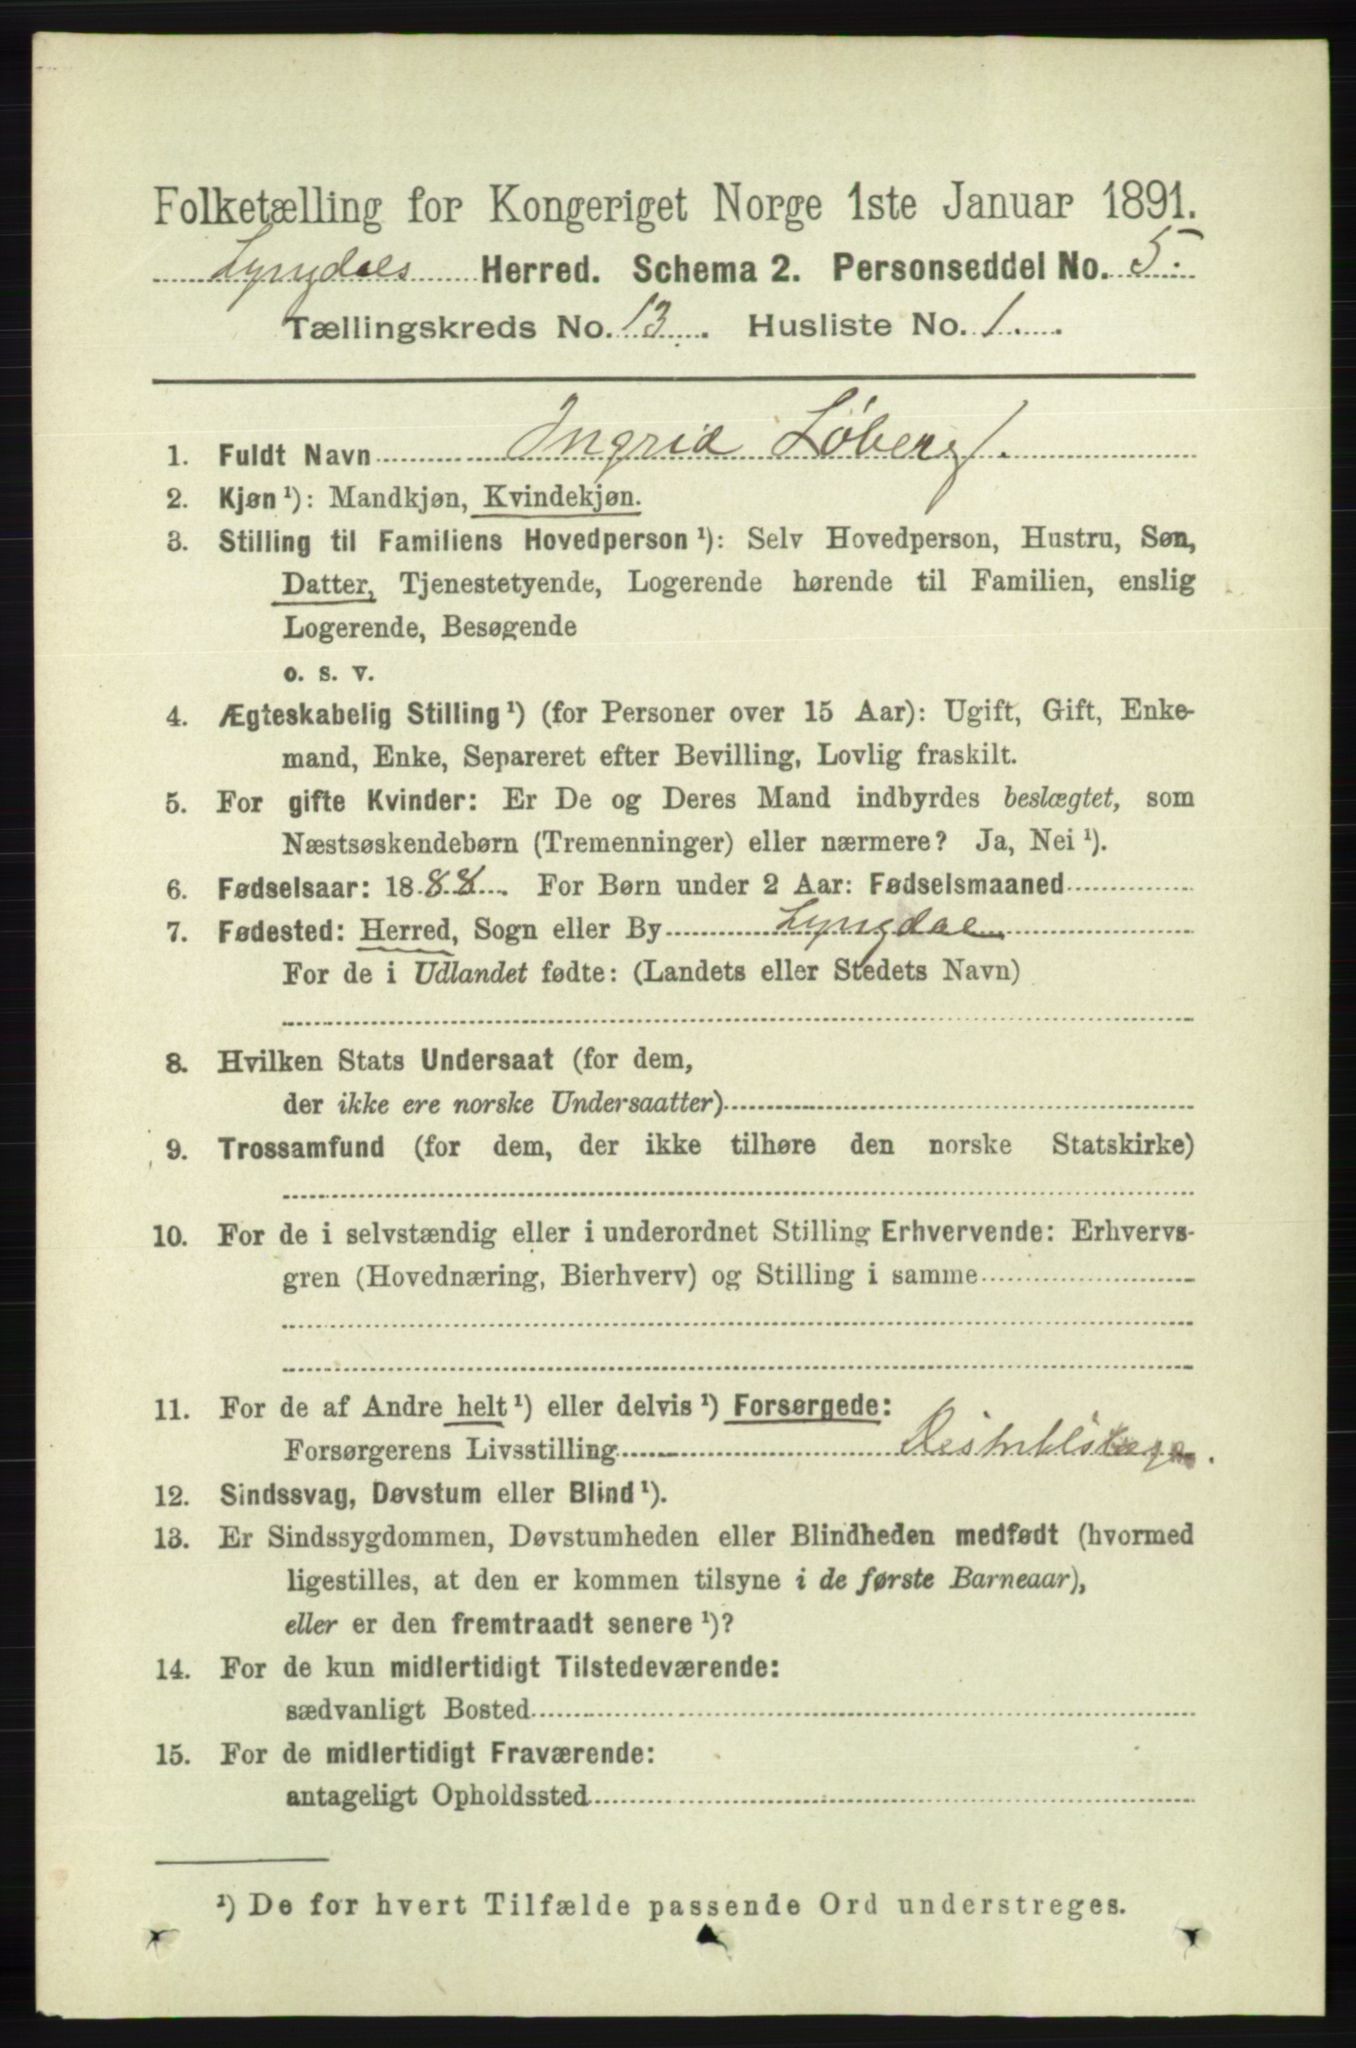 Folketælling for Kongeriget Norge 1ste Januar 1891.
Lyngdals Herred. Schema 2. Personseddel No. 5.
Tællingskreds No. 13. Husliste No. 1.
1. Fuldt Navn Ingrid Løberg.
2. Kjøn ¹): Mandkjøn, Kvindekjøn.
3. Stilling til Familiens Hovedperson ¹): Selv Hovedperson, Hustru, Søn,
Datter, Tjenestetyende, Logerende hørende til Familien, enslig
Logerende, Besøgende
o. s. v.
4. Ægteskabelig Stilling ¹) (for Personer over 15 Aar): Ugift, Gift, Enke-
mand, Enke, Separeret efter Bevilling, Lovlig fraskilt.
5. For gifte Kvinder: Er De og Deres Mand indbyrdes beslægtet, som
Næstsøskendebørn (Tremenninger) eller nærmere? Ja, Nei ¹).
6. Fødselsaar: 1888. For Børn under 2 Aar: Fødselsmaaned
7. Fødested: Herred, Sogn eller By Lyngdal
For de i Udlandet fødte: (Landets eller Stedets Navn)
8. Hvilken Stats Undersaat (for dem,
der ikke ere norske Undersaatter)
9. Trossamfund (for dem, der ikke tilhøre den norske Statskirke)
10. For de i selvstændig eller i underordnet Stilling Erhvervende: Erhvervs-
gren (Hovednæring, Bierhverv) og Stilling i samme
11. For de af Andre helt ¹) eller delvis ¹) Forsørgede:
Forsørgerens Livsstilling
12. Sindssvag, Døvstum eller Blind ¹).
13. Er Sindssygdommen, Døvstumheden eller Blindheden medfødt (hvormed
ligestilles, at den er kommen tilsyne i de første Barneaar),
eller er den fremtraadt senere ¹)?
14. For de kun midlertidigt Tilstedeværende:
sædvanligt Bosted
15. For de midlertidigt Fraværende:
antageligt Opholdssted
¹) De for hvert Tilfælde passende Ord understreges.